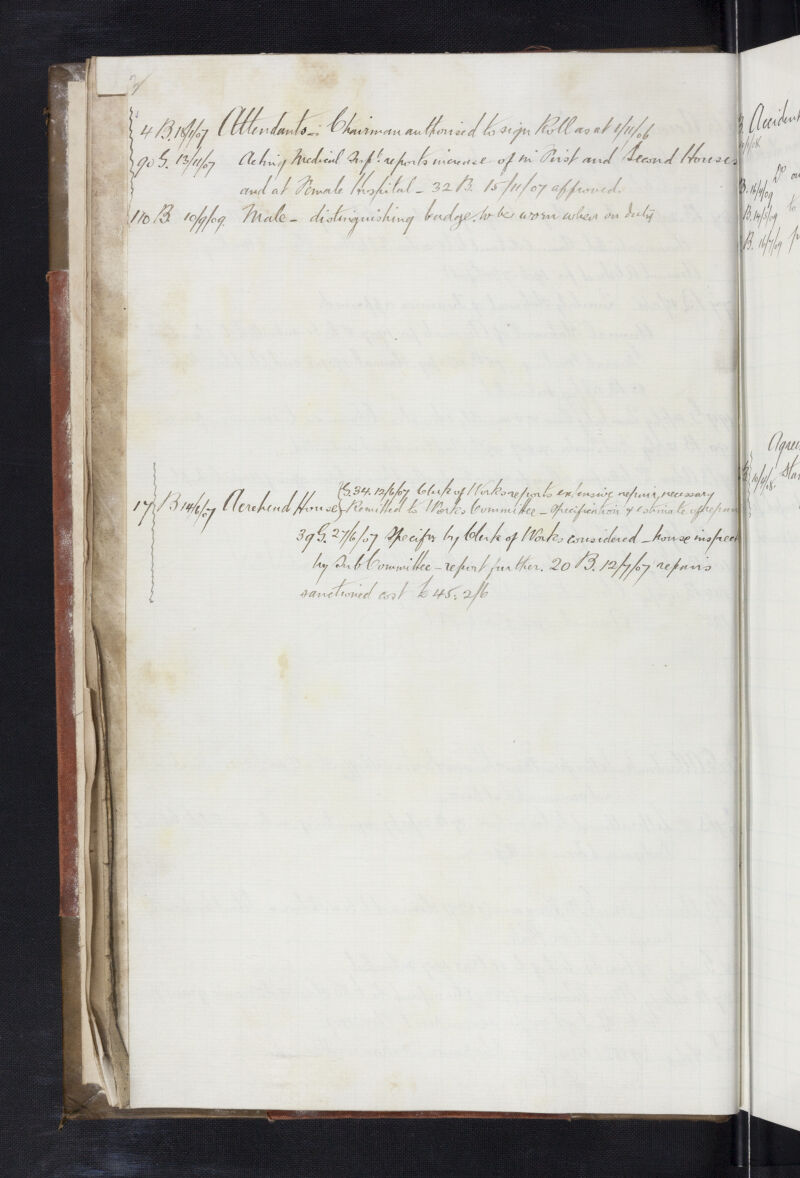 4 B. 18/1/07 Attendants :- Chairman authorised to sign Roll as at 1/11/06
90 G. 13/11/07 Acting Medical Supt. reports increase of in First and Second Houses
and at Female Hospital - 32 B. 15/11/07 approved.
110 B. 10/9/09. Male - distinguishing badges to be worn when on duty
G. 34. 12/6/07 Clerk of Works reports extensive repairs necessary
17 B 14/6/07 House Remitted to Works Committee - Specification & estimate of repairs
39 G. 27/6/07 Specifn by Clerk of Works considered - house inspec
by Sub Committee - report further. 20 B. 12/7/07 repairs
sanctioned cost £45. 2/6
Accident
Do
B. 16/7/09
Agree